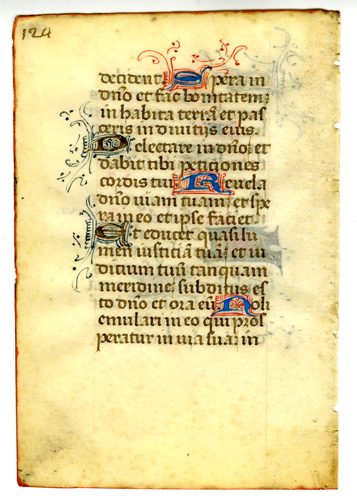 124
decident. Spera in
dn̄o et fac bonitatem:
in habita terrā et pas
ceris in divitijs eius.
Delectare in dn̄o: et
dabit tibi peticiones
cordis tui. Revela
dn̄o viam tuam: et spe
ra in eo et ipse faciet.
Et educet quasi lu
men iusticiā tuā: et iu
diticium tuū tanquam
meridine: subditus es
to dn̄o et ora eū. Noli
emulari in eo qui pros
peratur in via sua: in